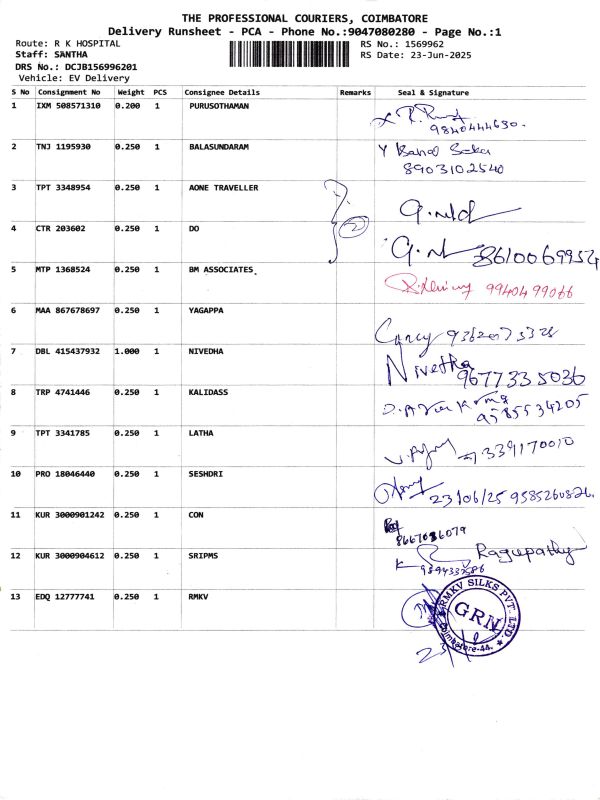 THE PROFESSIONAL COURIERS, COIMBATORE
Delivery Runsheet - PCA - Phone No.:9047080280 - Page No.:1
Route: R K HOSPITAL
RS No.: 1569962
Staff: SANTHA
RS Date: 23-Jun-2025
DRS No.: DCJB156996201
Vehicle: EV Delivery
S No Consignment No Weight PCS Consignee Details Remarks Seal & Signature
1 IXM 508571310 0.200 1 PURUSOTHAMAN
9840444630.
2 TNJ 1195930 0.250 1 BALASUNDARAM
8903102540
3 TPT 3348954 0.250 1 AONE TRAVELLER
4 CTR 203602 0.250 1 DO 2
8610069954
5 MTP 1368524 0.250 1 BM ASSOCIATES.
9940499066
6 MAA 867678697 0.250 1 YAGAPPA
7 DBL 415437932 1.000 1 NIVEDHA Nivedha
9677335036
8 TRP 4741446 0.250 1 KALIDASS
9585534205
9 TPT 3341785 0.250 1 LATHA
10 PRO 18046440 0.250 1 SESHDRI
23/06/25 9585260826.
11 KUR 3000901242 0.250 1 CON
8667086079
12 KUR 3000904612 0.250 1 SRIPMS Ragupathy
13 EDQ 12777741 0.250 1 RMKV
RMKV SILKS PVT. LTD.
GRN
Coimbatore-44.